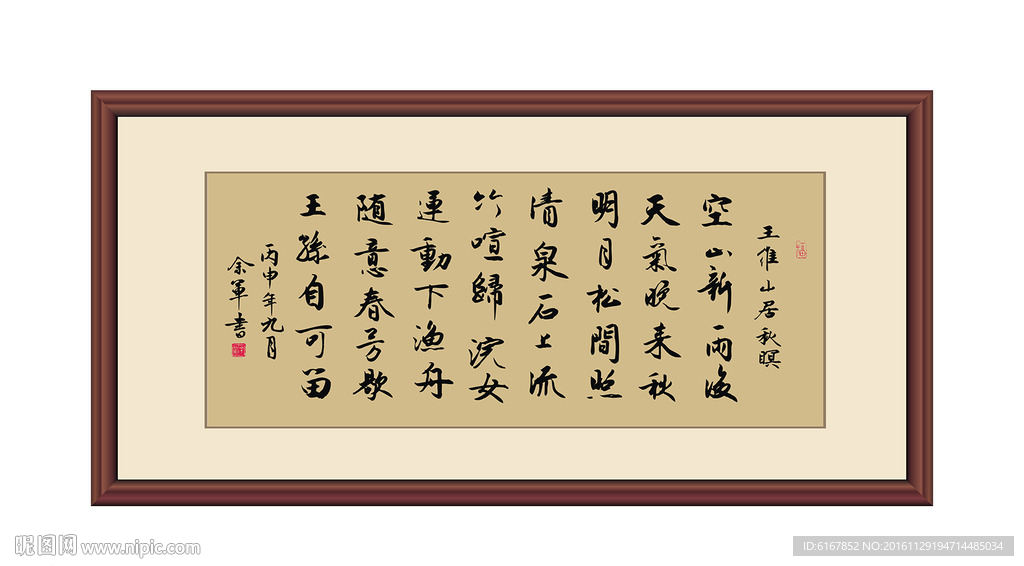 王維山居秋暝
空山新雨後
天氣晚来秋
明月松間照
清泉石上流
竹喧歸浣女
連動下漁舟
随意春芳歇
王孫自可留
丙申年九月
余軍書
昵图网 www.nipic.com
ID:6167852 NO:20161129194714485034